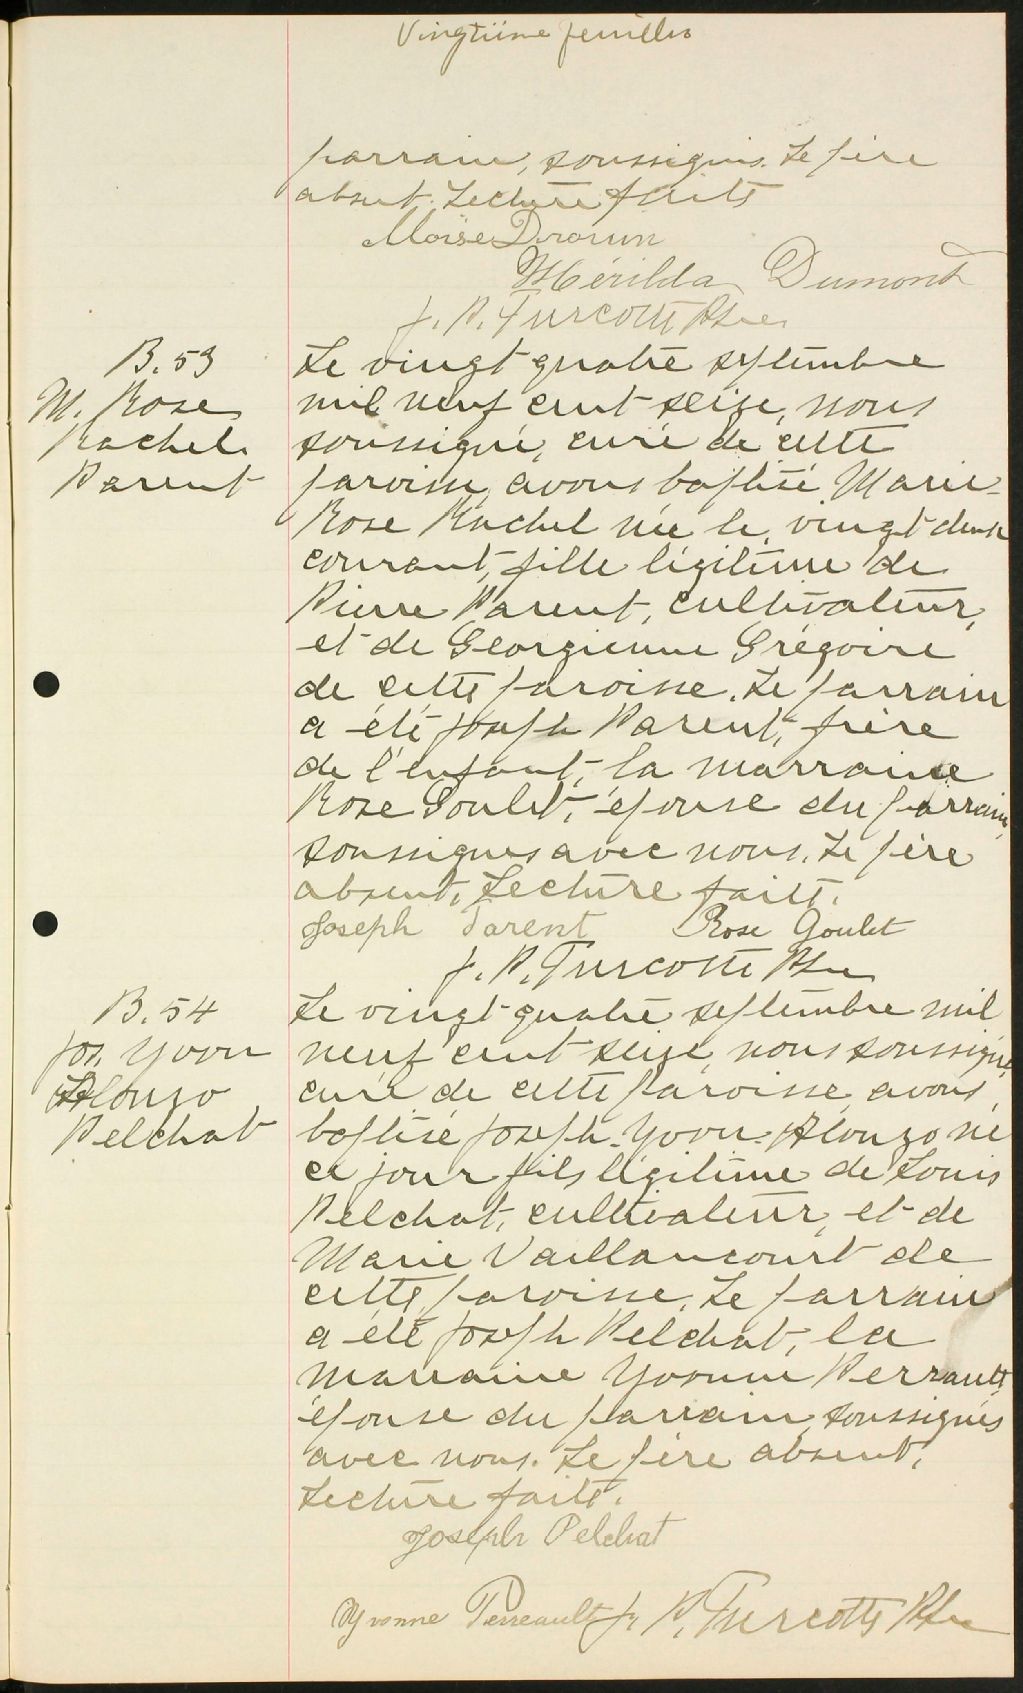 Vingtième feuillet
parrain, soussignés. Le père
absent. Lecture faite
Moïse Drouin
Mérilda Dumont
J. P. Turcotte Ptre
B. 53
M. Rose
Rachel
Parent
Le vingt quatre septembre
mil neuf cent seize, nous
soussigné, curé de cette
paroisse, avons baptisé Marie-
Rose Rachel née le vingt deux
courant, fille légitime de
Pierre Parent, cultivateur,
et de Georgienne Grégoire
de cette paroisse. Le parrain
a été Joseph Parent, frère
de l'enfant, la marraine
Rose Goulet, épouse du parrain,
soussignés avec nous. Le père
absent. Lecture faite.
Joseph Parent Rose Goulet
J. P. Turcotte Ptre
B. 54
Jos. Yvon
Alonzo
Pelchat
Le vingt quatre septembre mil
neuf cent seize, nous soussigné,
curé de cette paroisse, avons
baptisé Joseph-Yvon-Alonzo né
ce jour fils légitime de Louis
Pelchat, cultivateur, et de
Marie Vaillancourt de
cette paroisse. Le parrain
a été Joseph Pelchat, la
marraine Yvonne Perrault,
épouse du parrain, soussignés
avec nous. Le père absent.
Lecture faite.
Joseph Pelchat
Yvonne Perreault J. P. Turcotte Ptre